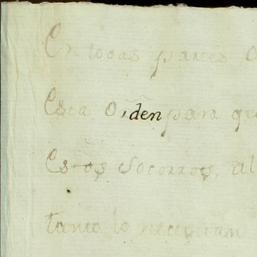 En todas partes
Esta Orden para que
Estos Socorros, al
tanto lo necesitan